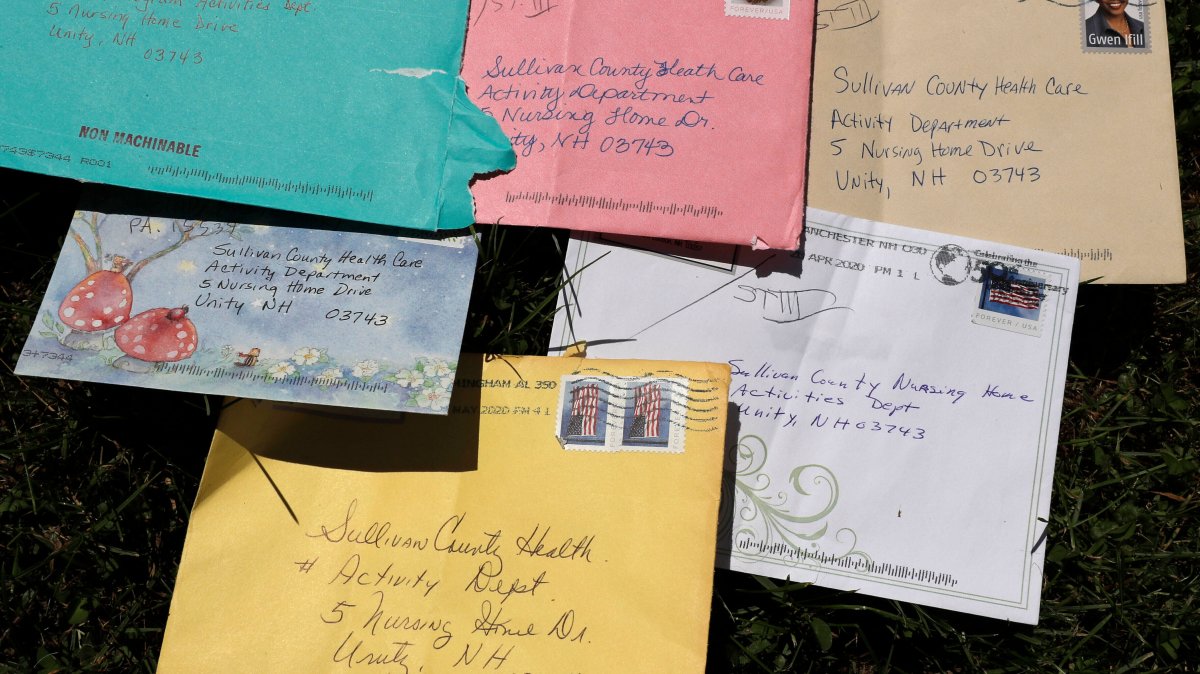 Activities Dept.
5 Nursing Home Drive
Unity, NH
03743
NON MACHINABLE
7344 R001
ST. III
FOREVER/USA
Sullivan County Heath Care
Activity Department
5 Nursing Home Dr.
ity, NH 03743
Gwen Ifill
Sullivan County Health Care
Activity Department
5 Nursing Home Drive
Unity, NH 03743
PA. 15537
Sullivan County Health Care
Activity Department
5 Nursing Home Drive
Unity NH 03743
3+7344
ANCHESTER NH 030
APR 2020 PM 1 L
Celebrating the
FOREVER / USA
Sullivan County Nursing Home
Activities Dept
Unity, NH 03743
INGHAM AL 350
MAY 2020 PM 4 L
Sullivan County Health
# Activity Dept.
5 Nursing Home Dr.
Unity, NH